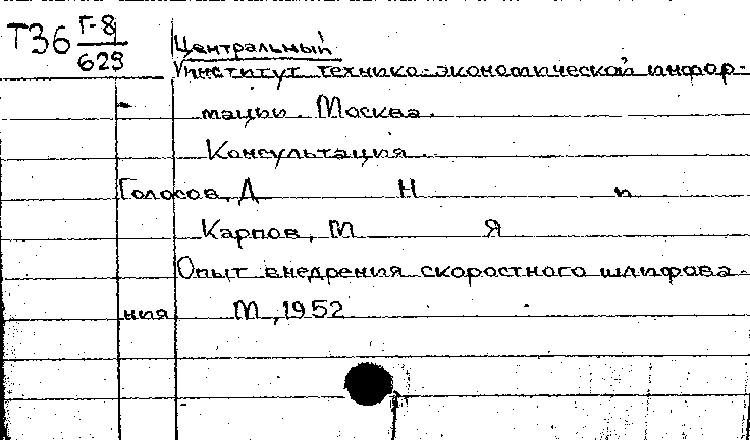 Т36 Г-8
629
Центральный
институт технико-экономической инфор-
мации. Москва.
Консультация.
Голосов, Д Н и
Карпов, М Я
Опыт внедрения скоростного шлифова-
ния М, 1952